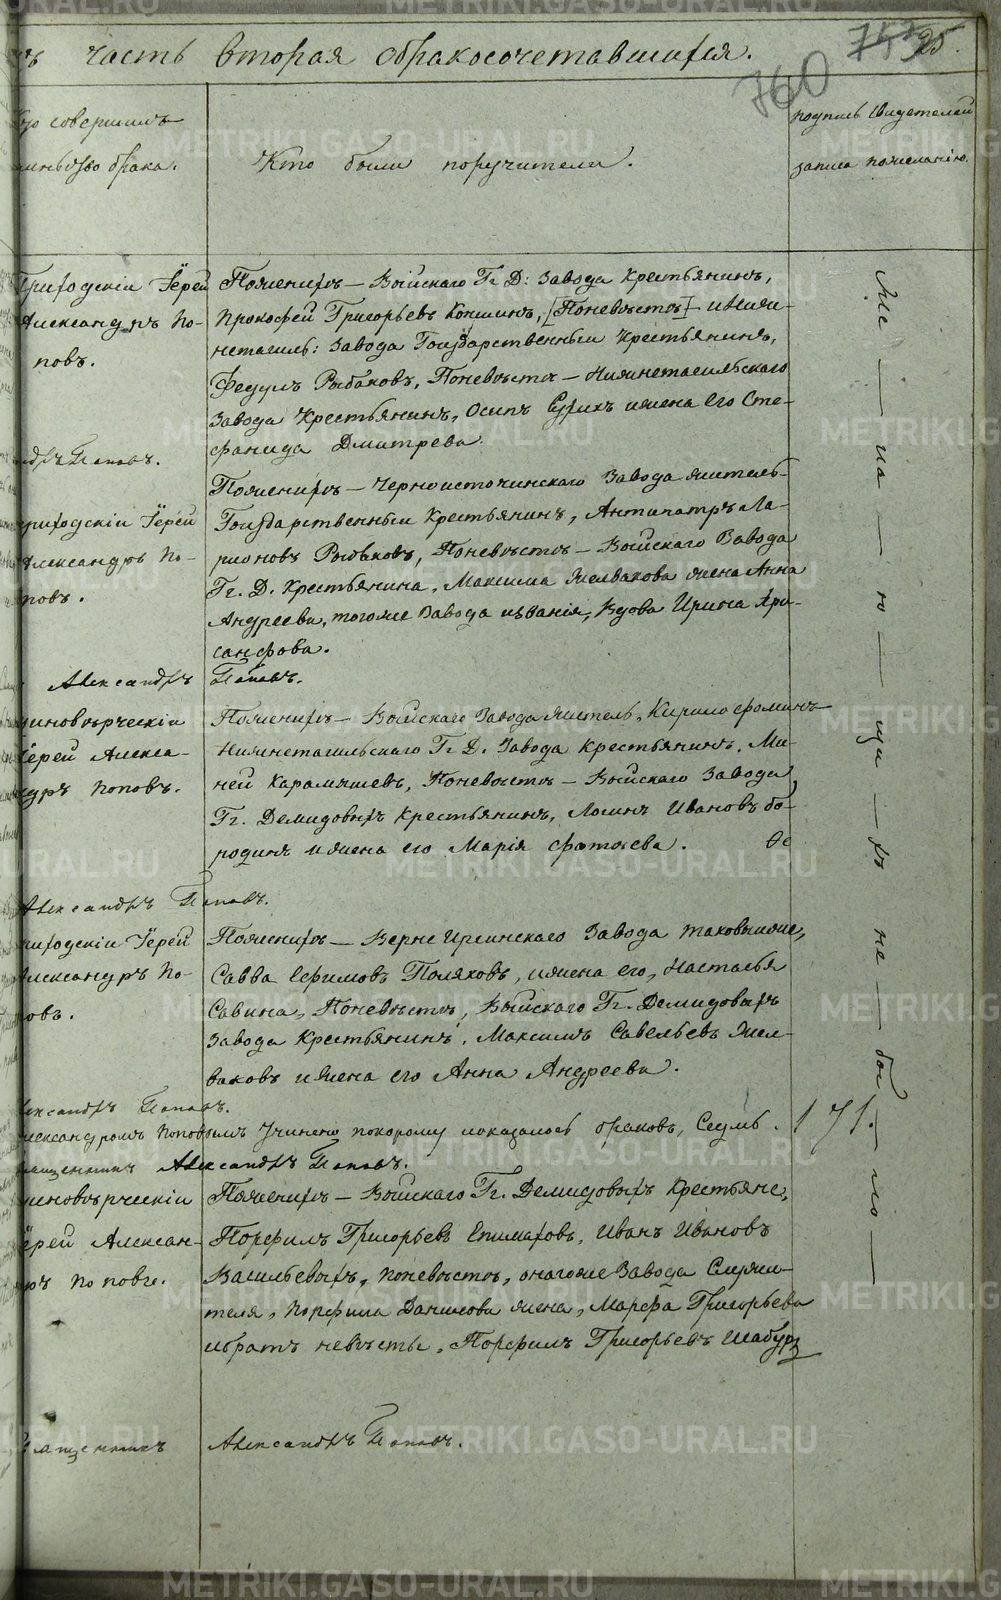 часть вторая обракосочетавшихся.
760
25.
совершилъ
брака.
Кто были поручители.
подпись свидетелей
записи пожеланію.
Приходскій Іерей
Александръ По-
повъ.
Пожениху — Выйскаго Гг. Д: Завода Крестьянинъ,
Прокофей Григорьевъ Кокшинъ, [Поневѣсте] — и Нижне-
тагиль: Завода Государственный Крестьянинъ,
Федулъ Рыбаковъ, Поневѣсте — Нижнетагильскаго
Завода Крестьянинъ, Осипъ и жена его Сте-
фанида Дмитрева.
Поповъ.
Приходскій Іерей
Александръ По-
повъ.
Пожениху — Черноисточинскаго Завода житель
Государственный Крестьянинъ, Антипатръ Ла-
рионовъ Рыбаковъ, Поневѣсте — Выйскаго Завода
Гг. Д. Крестьянина, Максима Желвакова жена Анна
Андреева, тогоже Завода Вдова Ирина Хри-
санфова.
Александръ Поповъ.
Единовѣрческій
Іерей Алекса-
ндръ Поповъ.
Пожениху — Выйскаго Завода житель, Кирило Фоминъ
Нижнетагильскаго Гг. Д. Завода Крестьянинъ, Ми-
ней Карамышевъ, Поневѣсте — Выйскаго Завода
Гг. Демидовыхъ Крестьянинъ, Логинъ Ивановъ Бо-
родинъ и жена его Марія Фотеева.
Александръ Поповъ.
Приходскій Іерей
Александръ По-
повъ.
Пожениху — Верхне Иргинскаго Завода
Савва Ефимовъ Поляковъ, и жена его, Настасья
Савина, Поневѣсте, Выйскаго Гг. Демидовыхъ
Завода Крестьянинъ, Максимъ Савельевъ Жел-
ваковъ и жена его Анна Андреева.
Александръ Поповъ.
Александромъ Поповымъ Учинено покоторому показалось браковъ, Семь.
171.
Священникъ Александръ Поповъ.
Единовѣрческій
Іерей Алексан-
дръ Поповъ.
Пожениху — Выйскаго Гг. Демидовыхъ Крестьяне,
Порфилъ Григорьевъ Епимаховъ, Иванъ Ивановъ
Васильевыхъ, Поневѣсте, онагоже Завода Служи-
теля, Порфила Данилова жена, Марфа Григорьева
ибратъ невѣсты, Порфилъ Григорьевъ Шабур
Священникъ Александръ Поповъ.